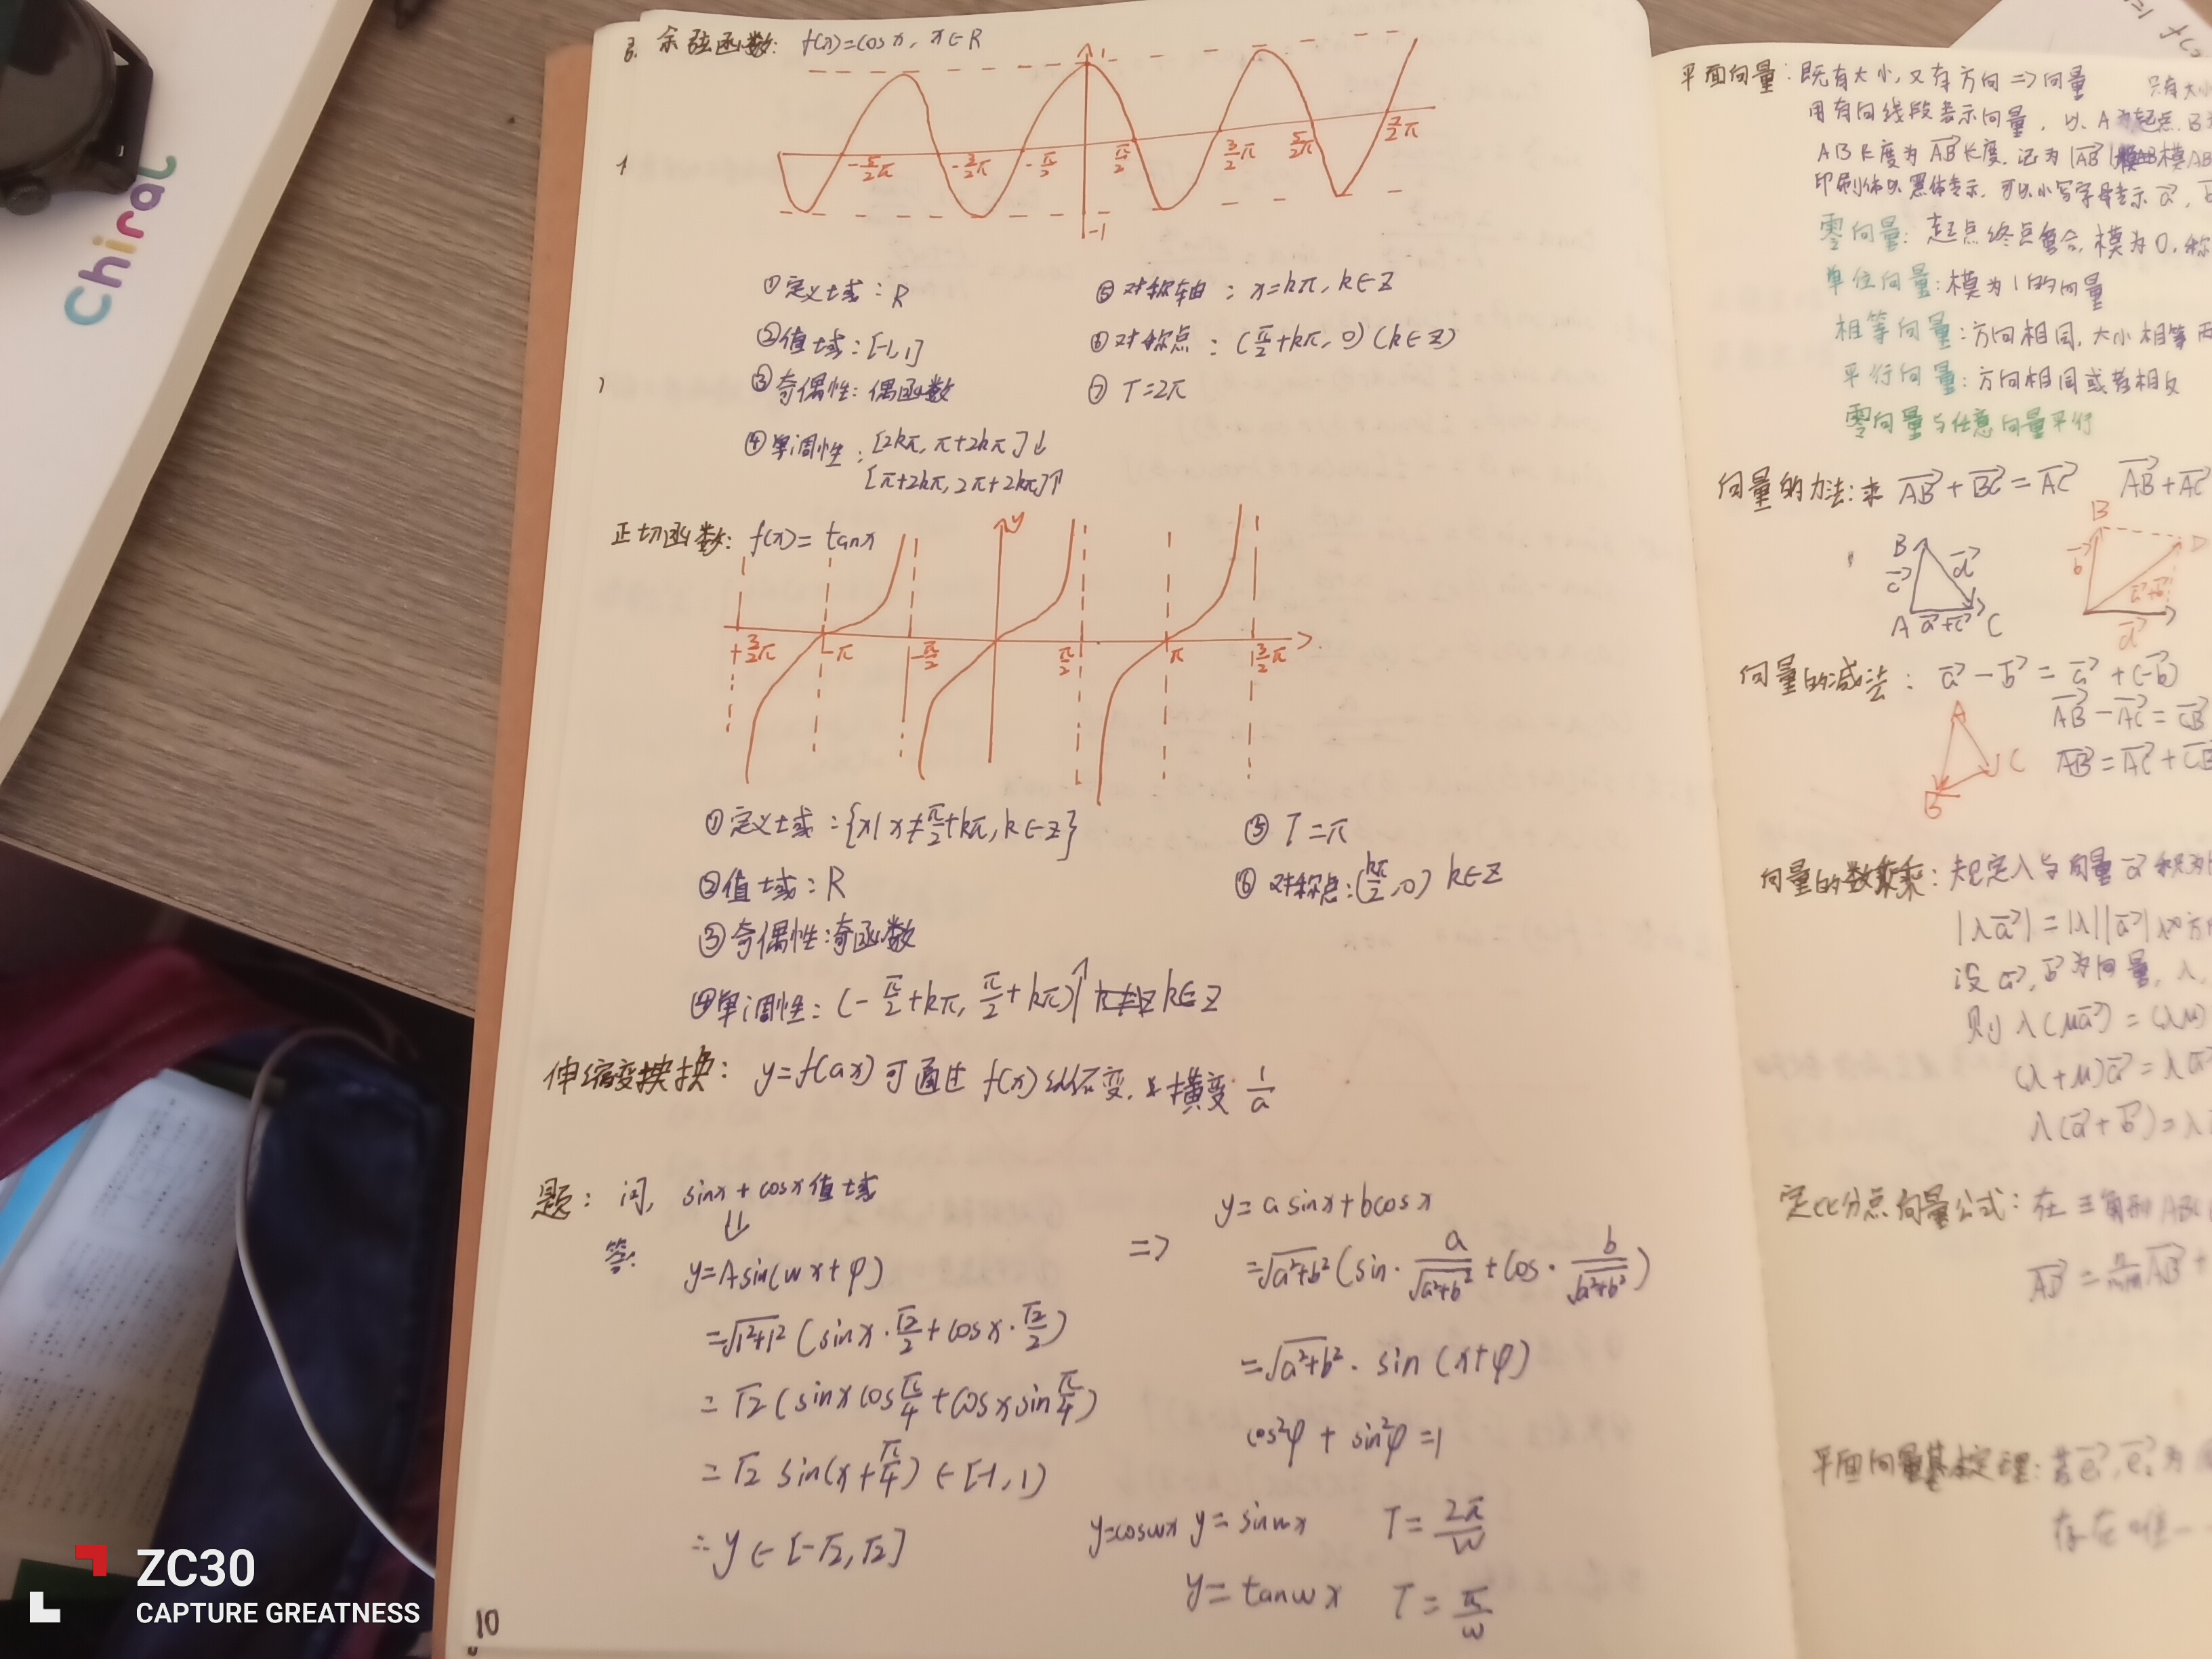 Chiral
余弦函数: f(x)=cosx, x∈R
1
-5/2π -3/2π -π/2 π/2 3/2π 5/2π 7/2π
-1
①定义域: R
②值域: [-1,1]
③奇偶性: 偶函数
④单调性: [2kπ, π+2kπ]↓
[π+2kπ, 2π+2kπ]↑
⑤对称轴: x=kπ, k∈Z
⑥对称点: (π/2+kπ, 0) (k∈Z)
⑦ T=2π
正切函数: f(x)= tanx
y
3/2π -π -π/2 π/2 π 3/2π
①定义域: {x|x≠π/2+kπ, k∈Z}
②值域: R
③奇偶性: 奇函数
④单调性: (-π/2+kπ, π/2+kπ)↑ k∈Z
⑤ T=π
⑥对称点: (kπ/2, 0) k∈Z
伸缩变换: y=f(ax)可通过 f(x)纵不变, 横变 1/a
题: 问, sinx+cosx值域
⇓
答: y=Asin(wx+φ)
=√1²+1² (sinx·√2/2+cosx·√2/2)
=√2(sinxcosπ/4+cosxsinπ/4)
=√2 sin(x+π/4)∈[-1,1)
∴y∈[-√2,√2]
=> y=asinx+bcosx
=√a²+b²(sin·a/√a²+b²+cos·b/√a²+b²)
=√a²+b²·sin(x+φ)
cos²φ+sin²φ=1
y=coswx y=sinwx T=2π/w
y=tanwx T=π/w
10
平面向量: 既有大小,又有方向=>向量 只有大小
用有向线段表示向量, 以A为起点,B
AB长度为AB→长度,记为|AB→| 模AB
印刷体以黑体表示,可以小写字母表示a→,
零向量: 起点终点重合,模为0,称
单位向量: 模为1的向量
相等向量: 方向相同,大小相等
平行向量: 方向相同或者相反
零向量与任意向量平行
向量的力法: 求 AB→+BC→=AC→ AB→+AC→
B c→ a→ A a→+c→ C
B b→ D a→+b→ a→
向量的减法: a→-b→=a→+(-b→)
AB→-AC→=CB→
AB→=AC→+CB
A B C
向量的数乘: 规定λ与向量a→积为
|λa→|=|λ||a→|
设a→,b→为向量, λ,
则λ(μa→)=(λμ)
(λ+μ)a→=λa→
λ(a→+b→)=λ
定比分点向量公式: 在三角形ABC
平面向量基本定理: 若e₁→,e₂→为
存在唯一
ZC30
CAPTURE GREATNESS